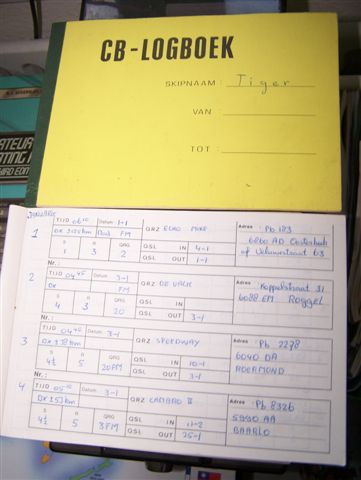 CB-LOGBOEK
SKIPNAAM : Tiger
VAN :
TOT :
JANUARI
1
TIJD 06 Datum 1-1
DX FM
S R QRG
1 3 2
QRZ ECHO MIKE
QSL IN 4-1
QSL OUT 1-1
Adres : Pb 183
6860 AD Oosterbeek
of 63
2
Nr.:
TIJD 04 45 Datum 3-1
DX FM
S R QRG
4 3 20
QRZ DE VALK
QSL IN
QSL OUT 3-1
Adres : Koppelstraat 31
6088 EM Roggel
3
Nr.:
TIJD 04 45 Datum 3-1
DX ± 18 km
S R QRG
4½ 5 20 FM
QRZ SPEEDWAY
QSL IN 10-1
QSL OUT 3-1
Adres : Pb 2278
6040 DA
ROERMOND
4
Nr.:
TIJD 05 Datum 3-1
DX ± 53 km
S R QRG
4½ 5 3 FM
QRZ CAMARO II
QSL IN 11-2
QSL OUT 25-1
Adres : Pb 8326
5990 AA
BAARLO